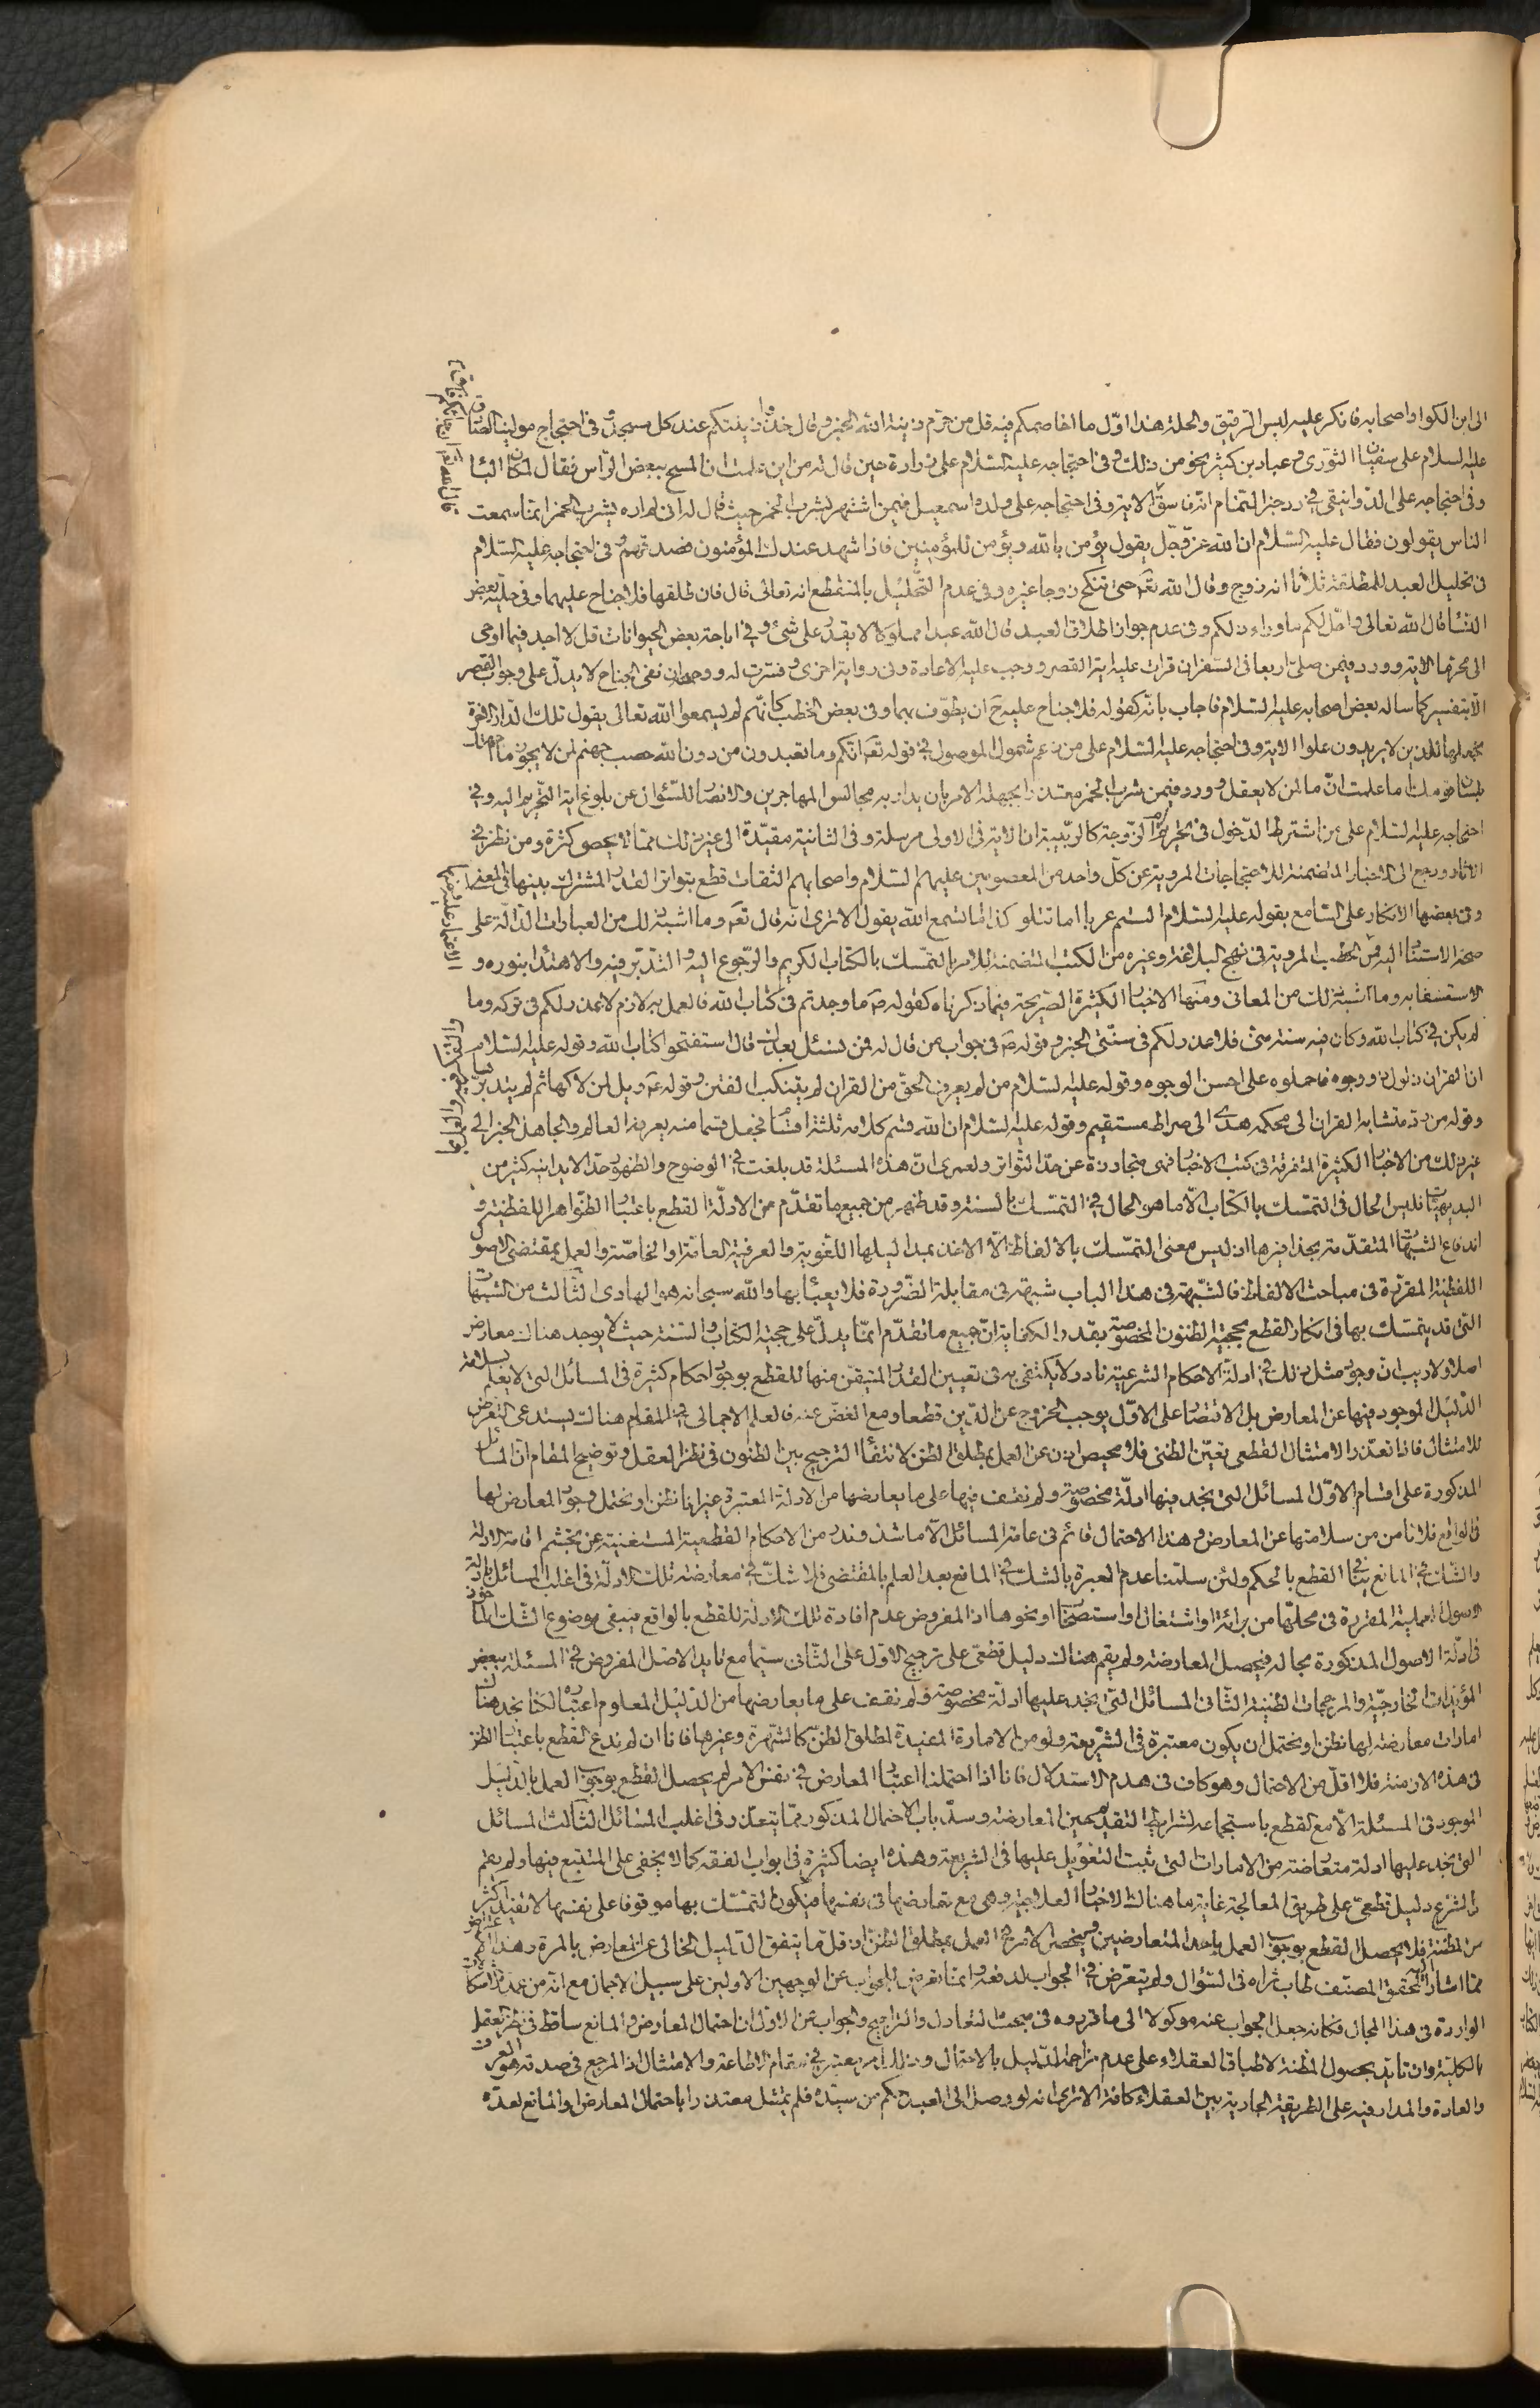 الى ابن الكوا واصحابه فانكر عليه لبس الرقيق والحلة هذا اوّل ما اخاصمكم فيه قل من حرّم زينة الله الخبر وقال خذوا زينتكم عند كل مسجد وفى احتجاج مولينا الصّادق
عليه السلام على سفيان الثورى وعباد بن كثير نحو من ذلك وفى احتجاجه عليه السّلام على زرارة حين قال له من اين علمت ان المسح ببعض الرّاس فقال لمكان البا
وفى احتجاجه على الدوانيقى فى ردّ خبر النمّام انه فاسق الاية وفى احتجاجه على ولده اسمعيل فيمن اشتهر بشرب الخمر حيث قال له انى لم اره يشرب الخمر انما سمعت
الناس يقولون فقال عليه السّلام ان الله عزّ وجلّ يقول يؤمن بالله ويؤمن للمؤمنين فاذا شهد عندك المؤمنون فصدقهم وفى احتجاجه عليه السّلام
فى تحليل العبد للمطلقة ثلاثا انه زوج وقال الله تعَ حتى تنكح زوجا غيره وفى عدم التّحليل بالمنقطع انه تعالى قال فان طلقها فلا جناح عليهما وفى حلية بعض
النسا قال الله تعالى واحلّ لكم ما وراء ذلكم وفى عدم جواز طلاق العبد قال الله عبدا مملوكا لا يقدر على شئ وفى اباحة بعض الحيوانات قل لا اجد فيما اوحى
الى محرّما الاية وورد فيمن صلّى اربعا فى السّفر ان قرات عليه اية القصر وجب عليه الاعادة وفى رواية اخرى وفسّرت له ووجهه ان نفى الجناح لا يدلّ على وجوب القصر
الّا بتفسير كما ساله بعض اصحابه عليه السّلام فاجاب بانّه كقوله فلا جناح عليه ان يطوّف بهما وفى بعض الخطب كانّهم لم يسمعوا الله تعالى يقول تلك الدّار الاخرة
نجعلها للذين لا يريدون علوا الاية وفى احتجاجه عليه السّلام على من زعم شمول الموصول فى قوله تعَ انّكم وما تعبدون من دون الله حصب جهنم لمن لا يجوز ما اجهلك
بلسان قومك اما علمت انّ ما لمن لا يعقل وورد فيمن شرب الخمر معتذرا بجهله الامر بان يدار به مجالس المهاجرين والانصار للسّؤال عن بلوغ اية التّحريم اليه وفى
احتجاجه عليه السّلام على من اشترط الدّخول فى تحريم امّ الزّوجة كالربّيبة ان الاية فى الاولى مرسلة وفى الثانية مقيّدة الى غير ذلك ممّا لا يحصى كثرة ومن نظر فى
الاثار ورجع الى الاخبار المتضمنة للاحتجاجات المروية عن كلّ واحد من المعصومين عليهم السّلام واصحابهم الثقات قطع بتواتر القدر المشترك بينها فى المعنى
وفى بعضها الانكار على السّامع بقوله عليه السّلام الستم عربا اما تتلو كذا اما تسمع الله يقول الا ترى انّه قال تعَ وما اشبه ذلك من العبارات الدّالّة على
صحّة الاستناد اليه وفى الخطب المروية فى نهج البلاغة وغيره من الكتب المتضمنة للامر بالتمسّك بالكتاب الكريم والرّجوع اليه والتّدبّر فيه والاهتداء بنوره و
الاستشفاء به وما اشبه ذلك من المعانى ومنها الاخبار الكثيرة الصّريحة فيما ذكرناه كقوله صَ ما وجدتم فى كتاب الله فالعمل به لازم لا عذر لكم فى تركه وما
لم يكن فى كتاب الله وكان فيه سنة منّى فلا عذر لكم فى سنّتى الخبر وقوله صَ فى جواب من قال له فمن نسئل بعدك قال استفتحوا كتاب الله وقوله عليه السّلام
ان القران ذلول ذو وجوه فاحملوه على احسن الوجوه وقوله عليه السّلام من لم يعرف الحقّ من القران لم يتنكب الفتن وقوله عَ ويل لمن لاكها ثم لم يتدبّر
وقوله من ردّ متشابه القران الى محكمه هدى الى صراط مستقيم وقوله عليه السّلام ان الله قسّم كلامه ثلثة اقسام فجعل قسما منه يعرفه العالم والجاهل الخبر الى
غير ذلك من الاخبار الكثيرة المتفرقة فى كتب الاخبار فهى متجاوزة عن حدّ التّواتر ولعمرى انّ هذه المسئلة قد بلغت فى الوضوح والظهور حدّا لا يدانيه كثير من
البديهيّات فليس الحال فى التمسّك بالكتاب الّا ما هو الحال فى التمسّك بالسنة وقد ظهر من جميع ما تقدّم من الادلّة القطع باعتبار الظّواهر اللفظية و
اندفاع الشّبهات المتقدّمة بحذافيرها اذ ليس معنى التمسّك بالالفاظ الّا الاخذ بمداليلها اللّغوية والعرفية العامّة او الخاصّة والعمل بمقتضى الاصول
اللفظية المقررة فى مباحث الالفاظ فالشّبهة فى هذا الباب شبهة فى مقابلة الضّرورة فلا يعبأ بها والله سبحانه هو الهادى الثالث من الشّبهات
التى قد يتمسّك بها فى انكار القطع بحجية الظنون المخصوصة بقدر الكفاية انّ جميع ما تقدّم انّما يدلّ على حجية الكتاب والسّنة حيث لا يوجد هناك معارض
اصلا ولا ريب انّ وجود مثل ذلك فى ادلّة الاحكام الشرعية نادر ولا يكتفى به فى تعيين القدر المتيقّن منها للقطع بوجود احكام كثيرة فى المسائل التى لا يعلم بسلامة
الدّليل الموجود فيها عن المعارض بل الاقتصار على الاوّل يوجب الخروج عن الدّين قطعا ومع الغضّ عنه فالعلم الاجمالى فى المقام هناك يستدعى التعرض
للامتثال فاذا تعذّر الامتثال القطعى تعيّن الظنى فلا محيص اذن عن العمل بمطلق الظن لانتفاء الترجيح بين الظنون فى نظر العقل وتوضيح المقام انّ المسائل
المذكورة على اقسام الاوّل المسائل التى نجد فيها ادلّة مخصوصة ولم نقف فيها على ما يعارضها من الادلّة المعتبرة غير انا نظن او نحتمل وجود المعارض لها
فى الواقع فلا نامن من سلامتها عن المعارض وهذا الاحتمال قائم فى عامة المسائل الّا ما شذ وندر من الاحكام القطعية المستغنية عن تجشم اقامة الادلة
والشّك فى المانع ينافى القطع بالحكم ولئن سلّمنا عدم العبرة بالشّك فى المانع بعد العلم بالمقتضى فلا شكّ فى معارضة تلك الادلّة فى اغلب المسائل بادلة
الاصول العملية المقررة فى محلّها من برائة او اشتغال او استصحاب او نحوها اذ المفروض عدم افادة تلك الادلّة للقطع بالواقع فيبقى موضوع الشّك الماخوذ
فى ادلّة الاصول المذكورة بحاله فيحصل المعارضة ولم يقم هناك دليل قطعىّ على ترجيح الاوّل على الثّانى سيّما مع تايد الاصل المفروض فى المسئلة ببعض
المؤيّدات الخارجيّة والمرجحات الظنية الثّانى المسائل التى نجد عليها ادلّة مخصوصة ولم نقف على ما يعارضها من الدّليل المعلوم اعتباره لكنّا نجد هناك
امارات معارضة لها نظن او نحتمل ان يكون معتبرة فى الشّريعة ولو من الامارة المفيدة لمطلق الظنّ كالشهرة وغيرها فانا ان لم ندع القطع باعتبار الظن
فى هذه الازمنة فلا اقلّ من الاحتمال وهو كاف فى هدم الاستدلال فانا اذا احتملنا اعتبار المعارض فى نفس الامر لم يحصل القطع بوجوب العمل بالدّليل
الموجود فى المسئلة الّا مع القطع باستجماعه لشرايط التقديم حين المعارضة وسدّ باب الاحتمال المذكور ممّا يتعذر فى اغلب المسائل الثّالث المسائل
التى نجد عليها ادلة متعارضة من الامارات التى ثبت التعويل عليها فى الشريعة وهذه ايضا كثيرة فى ابواب الفقه كما لا يخفى على المتتبع فيها ولم يقم
فى الشّرع دليل قطعىّ على طريق المعالجة غاية ما هناك الاخبار العلاجية وهى مع تعارضها فى نفسها فيكون التمسّك بها موقوفا على نفسها لا تفيد اكثر
من المظنة فلا يحصل القطع بوجوب العمل باحد المتعارضين فينحصر الامر فى العمل بمطلق الظنّ اذ قلّ ما يتفق الدّليل الخالى عن المعارض بالمرة وهذا
ممّا اشار اليه المحقق المصنّف طاب ثراه فى السّؤال ولم يتعرّض فى الجواب لدفعه وانما تعرض للجواب عن الوجهين الاولين على سبيل الاجمال مع انّه من عمدة الاشكالات
الواردة فى هذا المجال فكانه جعل الجواب عنه موكولا الى ما قرروه فى مبحث التعادل والتراجيح والجواب عن الاوّل ان احتمال المعارض والمانع ساقط فى نظر العقل
بالكلية وان تايد بحصول المظنة لاطباق العقلاء على عدم مزاحمة الدّليل بالاحتمال وذلك امر يعتبر فى مقام الاطاعة والامتثال اذ المرجع فى صدقه هو العرف
والعادة والمدار فيه على الطريقة الجارية بين العقلاء كافة الا ترى انه لو وصل الى العبد حكم من سيّده فلم يمتثل معتذرا باحتمال المعارض والمانع لعدّه